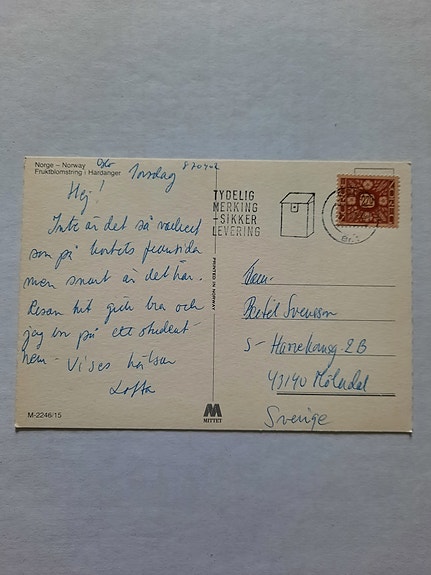 Norge – Norway
Fruktblomstring i Hardanger
Oslo
Torsdag
Hej!
Inte är det så vackert
som på kortets framsida
men snart är det här.
Resan hit gick bra och
jag bor på ett student-
hem – Vi ses hälsar
Lotta
M-2246/15
TYDELIG
MERKING
–SIKKER
LEVERING
PRINTED IN NORWAY
M
MITTET
NORGE
Bertil Svensson
S- 2B
43140 Mölndal
Sverige